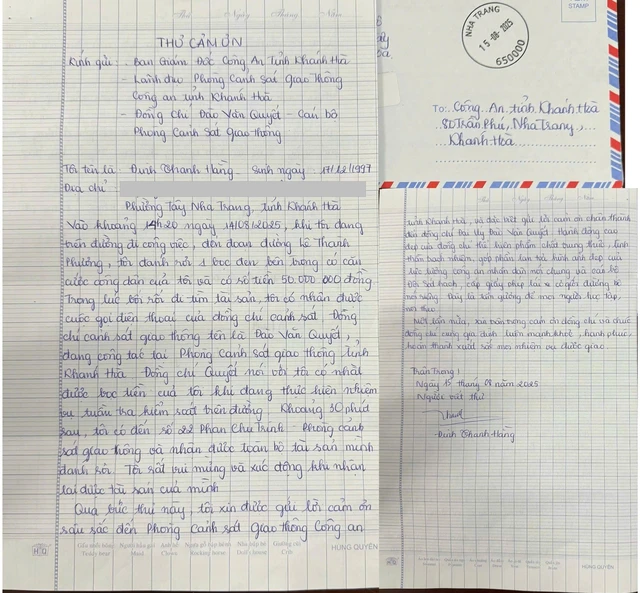 Thứ Ngày Tháng Năm
THƯ CẢM ƠN
Kính gửi: - Ban Giám Đốc Công An Tỉnh Khánh Hoà
- Lãnh đạo Phòng Cảnh Sát Giao Thông
Công an tỉnh Khánh Hoà
- Đồng Chí Đào Văn Quyết - Cán bộ
Phòng Cảnh Sát Giao thông
Tôi tên là Đinh Thanh Hằng - Sinh ngày 17/12/1997
Địa chỉ:
Phường Tây Nha Trang, tỉnh Khánh Hoà
Vào khoảng 14h20 ngày 14/08/2025, khi tôi đang
trên đường đi công việc, đến đoạn đường Lê Thanh
Phương, tôi đánh rơi 1 bọc đen bên trong có căn
cước công dân của tôi và có số tiền 50.000.000 đồng
Trong lúc bối rối đi tìm tài sản, tôi có nhận được
cuộc gọi điện thoại của đồng chí cảnh sát. Đồng
chí cảnh sát giao thông tên là Đào Văn Quyết,
đang công tác tại Phòng Cảnh sát giao thông tỉnh
Khánh Hoà. Đồng chí Quyết nói với tôi có nhặt
được bọc tiền của tôi khi đang thực hiện nhiệm
vụ tuần tra kiểm soát trên đường. Khoảng 30 phút
sau, tôi có đến số 22 Phan Chu Trinh - Phòng cảnh
sát giao thông và nhận được toàn bộ tài sản mình
đánh rơi. Tôi rất vui mừng và xúc động khi nhận
lại được tài sản của mình
Qua bức thư này, tôi xin được gửi lời cảm ơn
sâu sắc đến Phòng Cảnh sát giao thông Công an
HUNG QUYÊN
NHA TRANG
15-08-2025
650000
STAMP
To: Công An tỉnh Khánh Hoà
80 Trần Phú, Nha Trang,
Khánh Hoà
tỉnh Khánh Hoà, và đặc biệt gửi lời cảm ơn chân thành
đến đồng chí Đào Văn Quyết. Hành động cao
đẹp của đồng chí thể hiện phẩm chất trung thực, tinh
thần trách nhiệm, góp phần lan toả hình ảnh đẹp của
lực lượng công an nhân dân nói chung và cán bộ
Đội sát hạch, cấp giấy phép lái xe cơ giới đường bộ
nói riêng. Đây là tấm gương để mọi người học tập,
noi theo
Một lần nữa, xin trân trọng cảm ơn đồng chí và chúc
đồng chí cùng gia đình luôn mạnh khoẻ, hạnh phúc,
hoàn thành xuất sắc mọi nhiệm vụ được giao.
Trân Trọng!
Ngày 15 tháng 08 năm 2025
Người viết thư
Đinh Thanh Hằng
HUNG QUYÊN